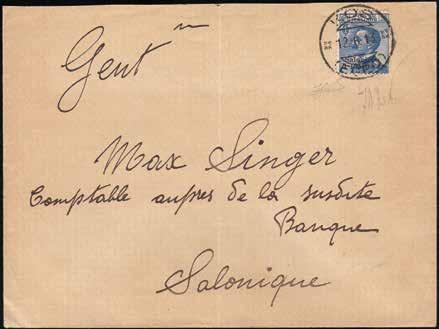 Gent^m
Max Singer
Comptable aupres de la susdite
Banque
Salonique
KOS
(EGEO)